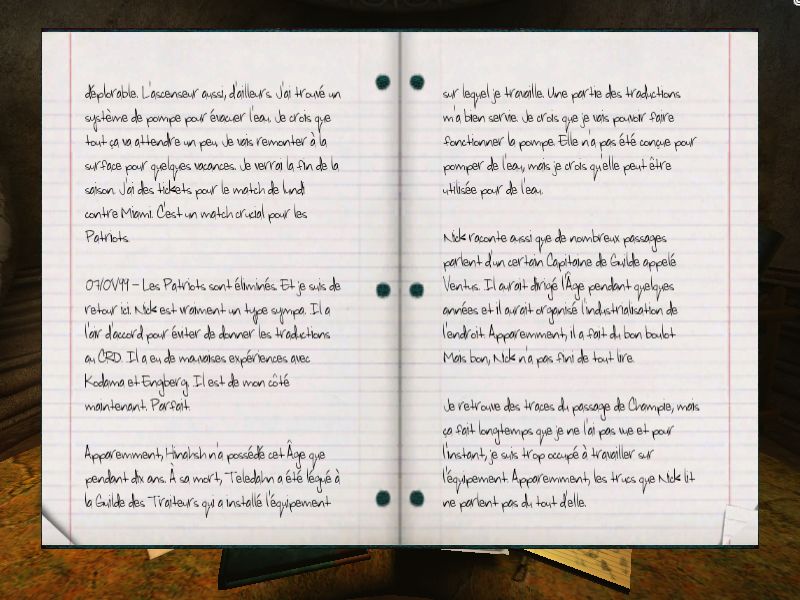 déplorable. L'ascenseur aussi, d'ailleurs. J'ai trouvé un
système de pompe pour évacuer l'eau. Je crois que
tout ça va attendre un peu. Je vais remonter à la
surface pour quelques vacances. Je verrai la fin de la
saison. J'ai des tickets pour le match de lundi
contre Miami. C'est un match crucial pour les
Patriots.
07/01/99 - Les Patriots sont éliminés. Et je suis de
retour ici. Nick est vraiment un type sympa. Il a
l'air d'accord pour éviter de donner les traductions
au CRD. Il a eu de mauvaises expériences avec
Kodama et Engberg. Il est de mon côté
maintenant. Parfait.
Apparemment, Hinahsh n'a possédé cet Âge que
pendant dix ans. À sa mort, Teledahn a été légué à
la Guilde des Traiteurs qui a installé l'équipement
sur lequel je travaille. Une partie des traductions
m'a bien servie. Je crois que je vais pouvoir faire
fonctionner la pompe. Elle n'a pas été conçue pour
pomper de l'eau, mais je crois qu'elle peut être
utilisée pour de l'eau.
Nick raconte aussi que de nombreux passages
parlent d'un certain Capitaine de Guilde appelé
Ventus. Il aurait dirigé l'Âge pendant quelques
années et il aurait organisé l'industrialisation de
l'endroit. Apparemment, il a fait du bon boulot.
Mais bon, Nick n'a pas fini de tout lire.
Je retrouve des traces du passage de Champie, mais
ça fait longtemps que je ne l'ai pas vue et pour
l'instant, je suis trop occupé à travailler sur
l'équipement. Apparemment, les trucs que Nick lit
ne parlent pas du tout d'elle.